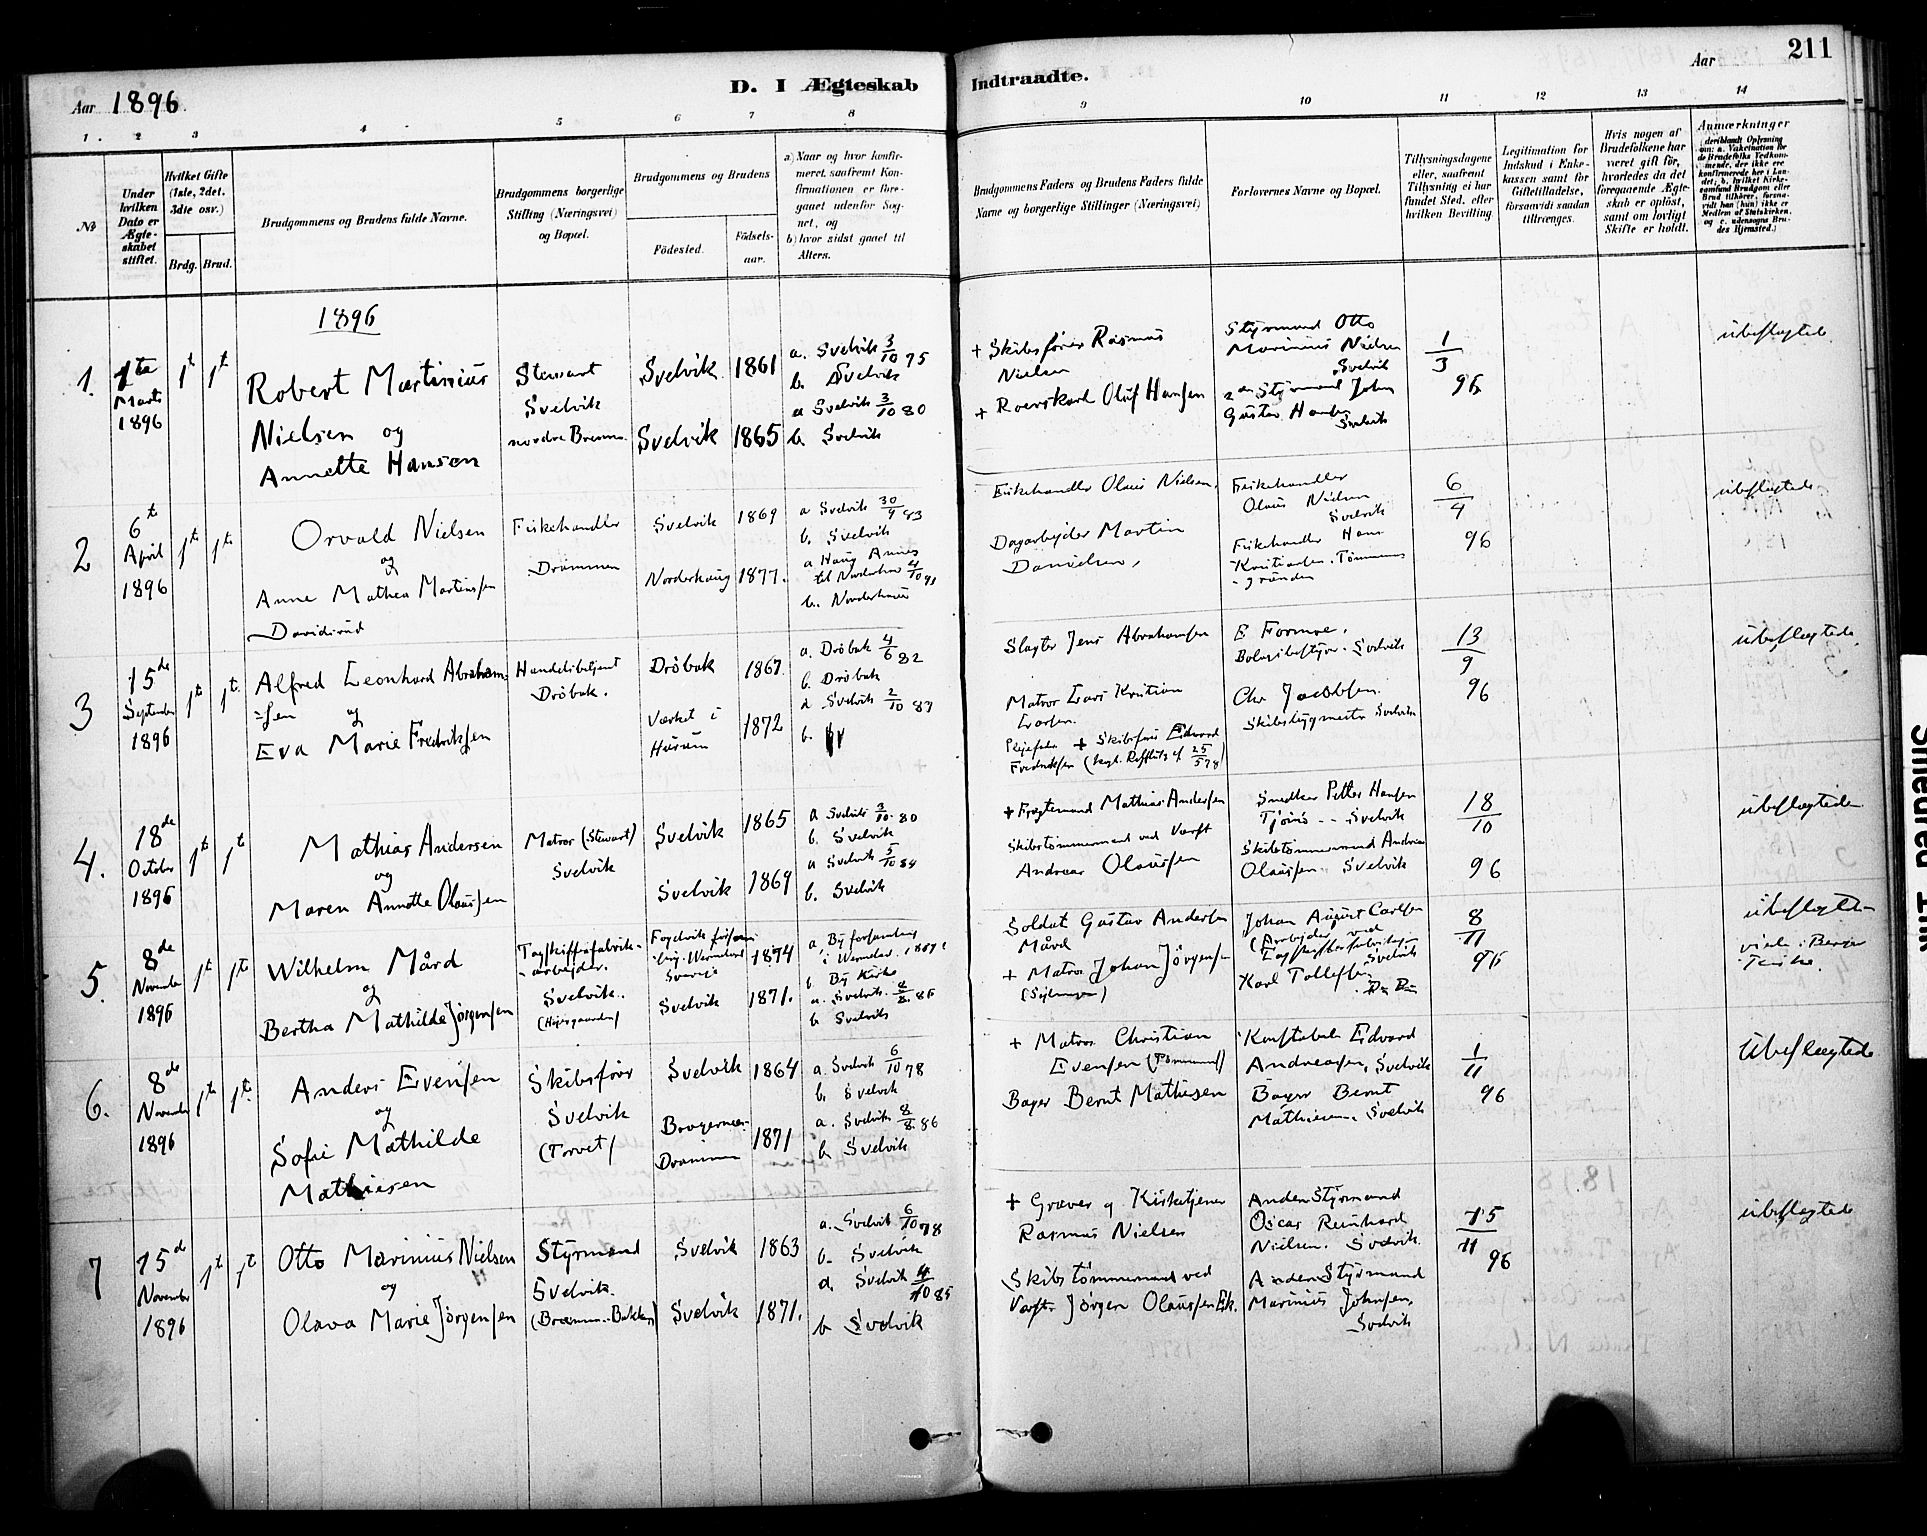 Aar 1896.
D. I Ægteskab
Indtraadte.
Aar
211
1. 2 3 4 5 6 7 8
9 10 11 12 13 14
№
Under hvilken Dato er Ægteskabet stiftet.
Hvilket Gifte (1ste, 2det. 3die osv.)
Brdg. Brud.
Brudgommens og Brudens fulde Navne.
Brudgommens borgerlige Stilling (Næringsvei) og Bopæl.
Brudgommens og Brudens
Födested.
Födsels-aar.
a) Naar og hvor konfirmeret, saafremt Konfirmationen er foregaaet udenfor Sognet, og
b) hvor sidst gaaet til Alters.
Brudgommens Faders og Brudens Faders fulde Navne og borgerlige Stillinger (Næringsvei)
Forlovernes Navne og Bopæl.
Tillysningsdagene eller, saafremt Tillysning ei har fundet Sted, efter hvilken Bevilling.
Legitimation for Indskud i Enkekassen samt for Giftetilladelse, forsaavidt saadan tiltrænges.
Hvis nogen af Brudefolkene har været gift för, hvorledes da det foregaaende Ægteskab er oplöst, samt om lovligt Skifte er holdt.
Anmærkninger
1896
1. 1ste Marts 1896
1t 1t
Robert Martinius
Nielsen og
Annette Hansen
Stewart
Svelvik
nordre
Svelvik 1861
Svelvik 1865
a. Svelvik 3/10 75
b. Svelvik
a Svelvik 3/10 80
b. Svelvik
+ Skibsförer Rasmus
Nielsen
+ Roerskarl Oluf Hansen
Styrmand Otto
Marinius Nielsen
Svelvik
2den Styrmand John
Gustav Hansen
Svelvik
1/3 96
ubeslegtede
2 6t April 1896
1t 1t
Orvald Nielsen
og
Anne Mathea Martinsen
Davidsrud
Fiskehandler
Drammen
Svelvik 1869
Norderhaug 1877.
a Svelvik 30/9 83
b. Svelvik
a Haug Annex
til Norderhov 4/10 91
b. Norderhaug
Fiskehandler Olaus Nielsen,
Dagarbejder Martin
Danielsen,
Fiskehandler
Olaus Nielsen
Svelvik
Fiskehandler Hans
Kristiansen. Tømmeraas
-grunden
6/4 96
ubeslegtede
3 15de September 1896
1t 1t
Alfred Leonhard Abraham-
=sen og
Eva Marie Fredriksen
Handelsbetjent
Dröbak.
Dröbak 1867
Værket i
Hurum 1872
a. Dröbak 4/6 82
b. Dröbak
a Svelvik 2/10 87
b. "
Slagter Jens Abrahamsen
Matros Lars Kristian
Larsen.
Plejefader + Skibsförer Edvard
Fredriksen
E Formoe.
Bolagsbestyrer. Svelvik
Chr Jacobsen.
Skibsbygmester Svelvik
13/9 96
ubeslegtede
4. 18de October 1896
1t 1t
Mathias Andersen
og
Maren Annette Olaussen
Matros (Stewart)
Svelvik
Svelvik 1865
Svelvik 1869
a Svelvik 3/10 80
b. Svelvik
a Svelvik 5/10 84
b. Svelvik
+ Fragtemand Mathias Andersen
Skibstömmermand ved Værft
Andreas Olaussen
Snedker Petter Hansen
Tjöns -- Svelvik
Skibstömmermand Andreas
Olaussen. Svelvik
18/10 96
ubeslegtede
5. 8de November 1896
1t 1t
Wilhelm Mård
og
Bertha Mathilde Jørgensen
Tagskiffrefabrik-
-arbejder.
Svelvik.
Fogdvik
Wermland
Sverige 1874
Svelvik 1871.
a, By forsamling
i Wermland
b. By Kirke
a. Svelvik 8/8 86
b Svelvik
Soldat Gustav Andersen
Mård
+ Matros Johan Jörgensen
Johan August Carlsen
(Arbejder ved
Svelvik
Karl Tollefsen
8/11 96
ubeslegtede
viede i Berger
Kirke.
6. 8de November 1896
1t 1t
Anders Evensen
og
Sofie Mathilde
Mathiesen
Skibsförer
Svelvik
(Torvet)
Svelvik 1864
Bragernes
Drammen 1871
a. Svelvik 6/10 78
b. Svelvik
a. Svelvik 8/8 86
b. Svelvik
+ Matros Christian
Evensen
Bager Bernt Mathiesen
Konstabel Edvard
Andreassen, Svelvik
Bager Bernt
Mathiesen, Svelvik
1/11 96
Ubeslegtede
7 15de November 1896
1t 1t
Otto Marinius Nielsen
og
Olava Marie Jörgensen
Styrmand
Svelvik.
Svelvik 1863
Svelvik 1871.
a. Svelvik 6/10 78
b. Svelvik
a. Svelvik 4/10 85
b Svelvik
+ Graver og Kirketjener
Rasmus Nielsen
Skibstömmermand ved
Værfte Jörgen Olaussen Ek.
Anden Styrmand
Oscar Reinhard
Nielsen. Svelvik
Anden Styrmand
Marinius Johnsen,
Svelvik
15/11 96
ubeslegtede